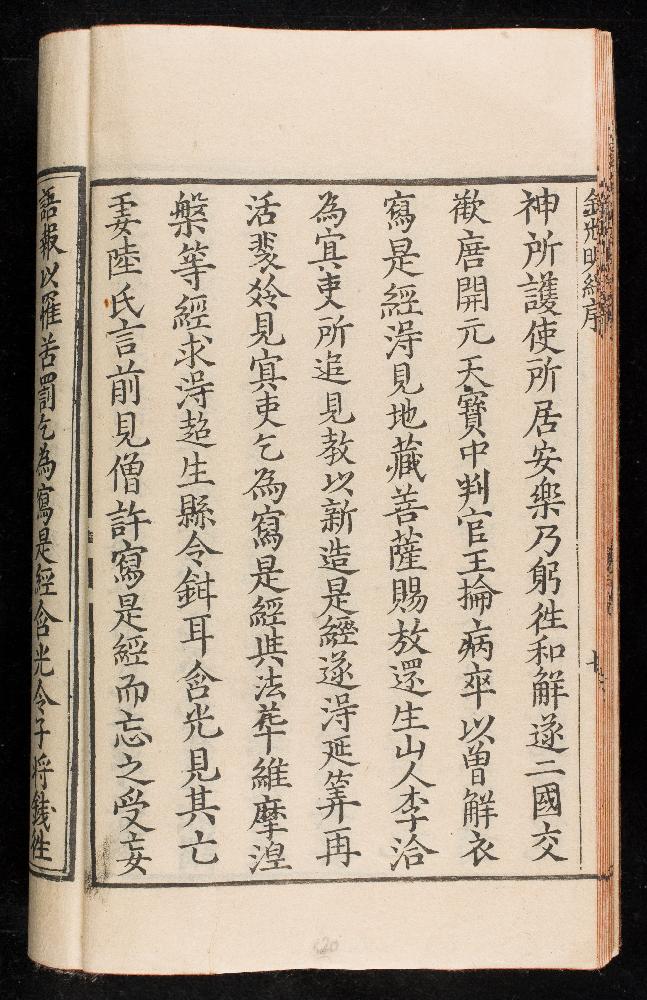 神所護使所居安樂乃躬徃和解遂二國交
歡唐開元天寶中判官王掄病卒以曾解衣
寫是經淂見地藏菩薩賜放還生山人李洽
為㝠吏所追見教以新造是經遂淂延筭再
活裴龄見㝠吏乞為寫是經與法華維摩湼
槃等經求淂超生縣令鉗耳含光見其亡
妻陸氏言前見僧許寫是經而忘之受妄
語報以罹苦罰乞為寫是經含光令子將錢徃